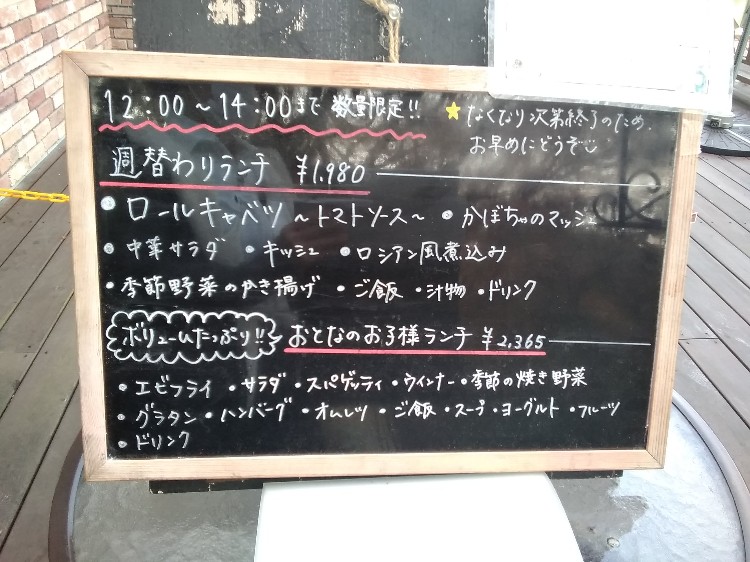 12:00～14:00まで 数量限定!!
★なくなり次第終了のため、
お早めにどうぞ
週替わりランチ ¥1,980
・ロールキャベツ～トマトソース～ ・かぼちゃのマッシュ
・中華サラダ ・キッシュ ・ロシアン風煮込み
・季節野菜のかき揚げ ・ご飯 ・汁物 ・ドリンク
ボリュームたっぷり!! おとなのお子様ランチ ¥2,365
・エビフライ ・サラダ ・スパゲッティ ・ウインナー ・季節の焼き野菜
・グラタン ・ハンバーグ ・オムレツ ・ご飯 ・スープ ・ヨーグルト ・フルーツ
・ドリンク